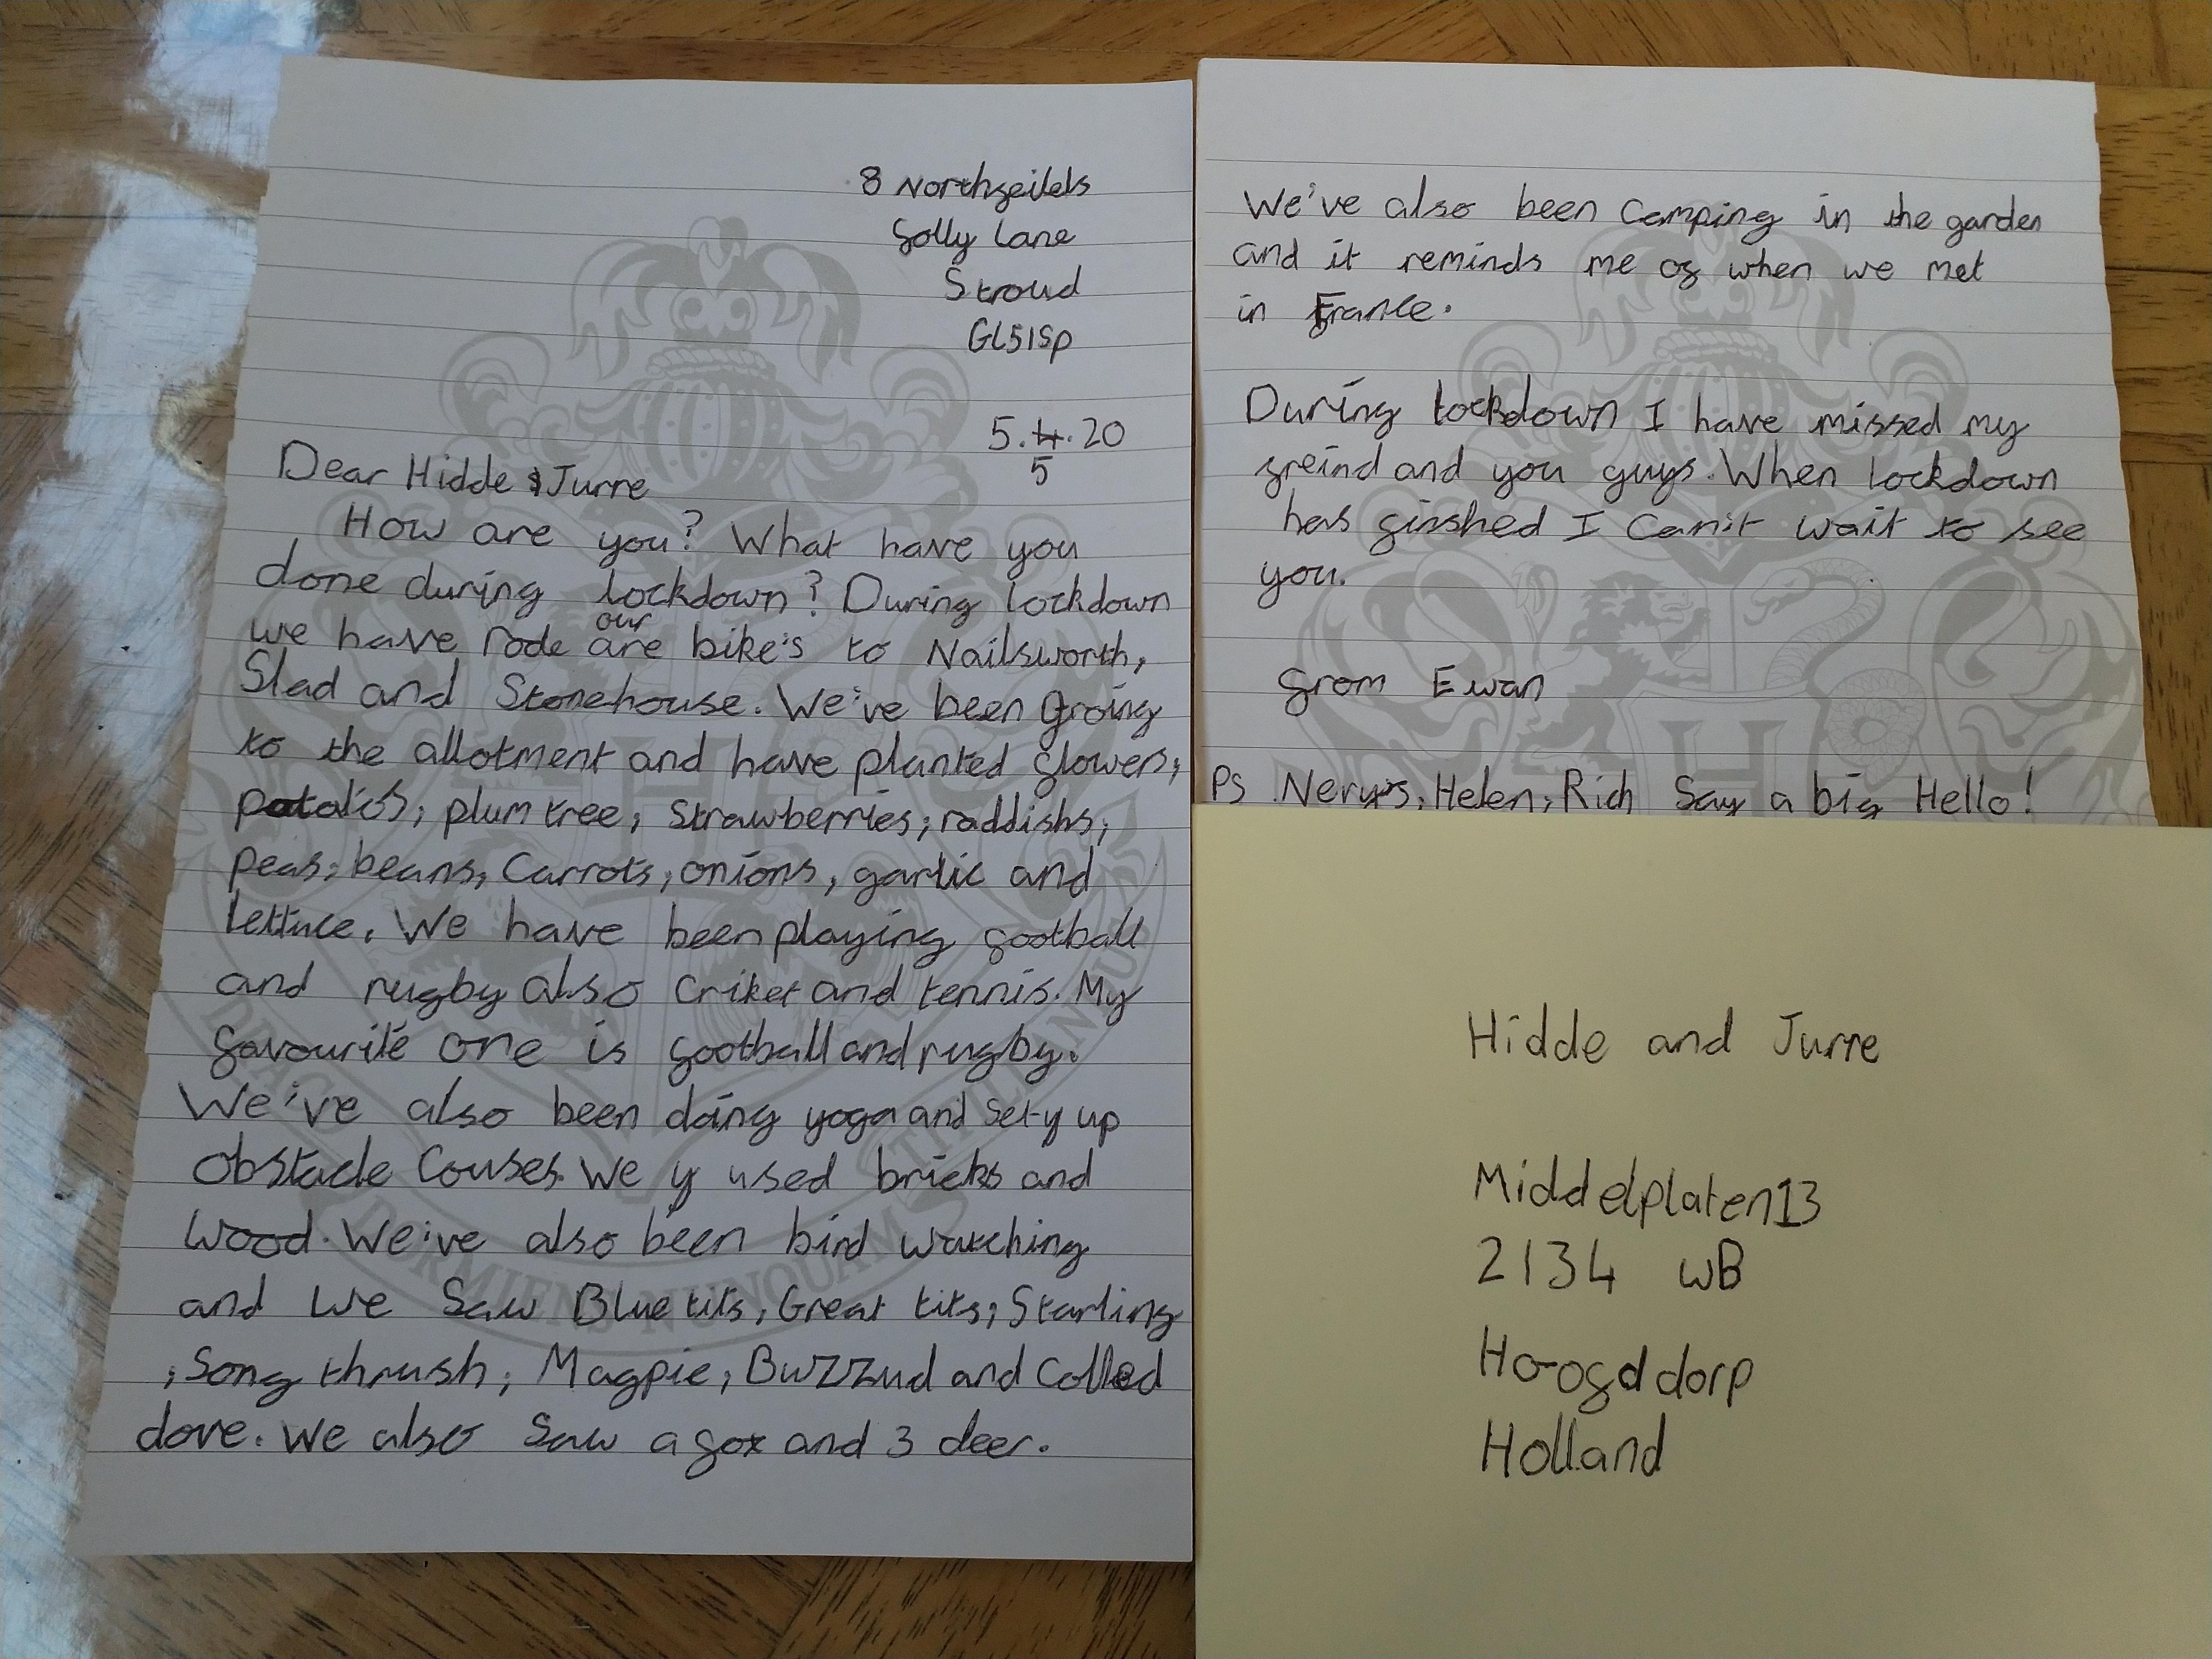 8 Northfeilds
Folly Lane
Stroud
GL51SP
5.4.20
5
Dear Hidde & Jurre
How are you? What have you
done during lockdown? During lockdown
our
we have rode are bike's to Nailsworth,
Slad and Stonehouse. We've been groing
to the allotment and have planted flowers,
potatios, plum tree, strawberries, raddishs,
peas, beans, Carrots, onions, garlic and
lettuce. We have been playing football
and rugby also criket and tennis. My
favourite one is football and rugby.
We've also been doing yoga and set up
obstacle Couses. We used bricks and
wood. We've also been bird watching
and we saw Blue tits, Great tits, Starling
, Song thrush, Magpie, Buzzud and Colled
dove. We also saw a fox and 3 deer.
We've also been camping in the garden
and it reminds me of when we met
in France.
During lockdown I have missed my
freind and you guys. When lockdown
has finshed I Can't wait to see
you.
from Ewan
Ps Nerys, Helen, Rich Say a big Hello!
Hidde and Jurre
Middelplaten13
2134 WB
Hoofddorp
Holland
DRACO DORMIENS NUNQUAM TITILLANDUS
H